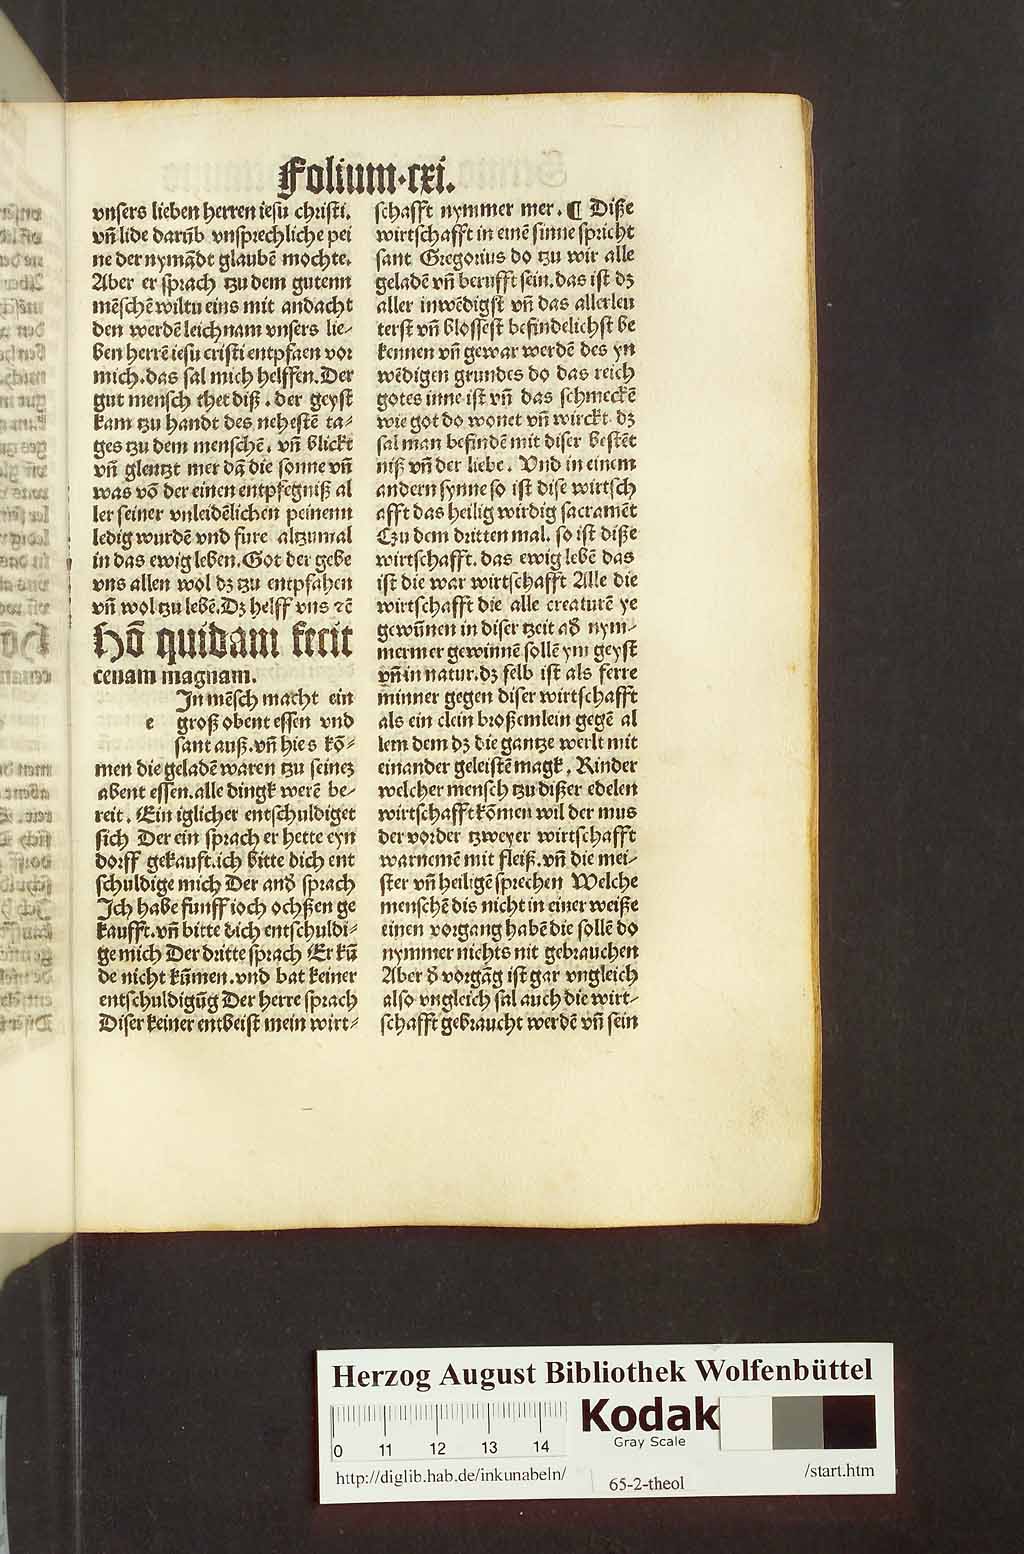 Folium·cxi.
vnsers lieben herren iesu christi.
vñ lide darũb vnsprechliche pei
ne der nymãdt glaubẽ mochte.
Aber er sprach tzu dem gutenn
mẽschẽ wiltu eins mit andacht
den werdẽ leichnam vnsers lie-
ben herrẽ iesu cristi entpfaen vor
mich. das sal mich helffen. Der
gut mensch thet diß. der geyst
kam tzu handt des nehestẽ ta-
ges tzu dem menschẽ. vñ blickt
vñ glentzt mer dã die sonne vñ
was võ der einen entpfegniß al
ler seiner vnleidẽlichen peinenn
ledig wurdẽ vnd fure altzumal
in das ewig leben. Got der gebe
vns allen wol dz tzu entpfahen
vñ wol tzu lebẽ. Dz helff vns ⁊ẽ
Hõ quidam fecit
cenam magnam.
e Jn mẽsch macht ein
groß obent essen vnd
sant auß. vñ hies kõ-
men die geladẽ waren tzu seinez
abent essen. alle dingk werẽ be-
reit. Ein iglicher entschuldiget
sich Der ein sprach er hette eyn
dorff gekauft. ich bitte dich ent
schuldige mich Der and̃ sprach
Jch habe funff ioch ochßen ge
kaufft. vñ bitte dich entschuldi-
ge mich Der dritte sprach Er kũ
de nicht kũmen. vnd bat keiner
entschuldigũg Der herre sprach
Diser keiner entbeist mein wirt-
schafft nymmer mer. ¶ Diße
wirtschafft in einẽ sinne spricht
sant Gregorius do tzu wir alle
geladẽ vñ berufft sein. das ist dz
aller inwẽdigst vñ das allerleu
terst vñ blossest befindelichst be
kennen vñ gewar werdẽ des yn
wẽdigen grundes do das reich
gotes inne ist vñ das schmeckẽ
wie got do wonet vñ wirckt. dz
sal man befindẽ mit diser bestẽt
niß vñ der liebe. Vnd in einem
andern synne so ist dise wirtsch
afft das heilig wirdig sacramẽt
Czu dem dritten mal. so ist diße
wirtschafft. das ewig lebẽ das
ist die war wirtschafft Alle die
wirtschafft die alle creaturẽ ye
gewũnen in diser tzeit ad̃ nym-
mermer gewinnẽ sollẽ ym geyst
vñ in natur. dz selb ist als ferre
minner gegen diser wirtschafft
als ein clein broßemlein gegẽ al
lem dem dz die gantze werlt mit
einander geleistẽ magk. Kinder
welcher mensch tzu dißer edelen
wirtschafft kõmen wil der mus
der vorder tzweyer wirtschafft
warnemẽ mit fleiß. vñ die mei-
ster vñ heiligẽ sprechen Welche
menschẽ dis nicht in einer weiße
einen vorgang habẽ die sollẽ do
nymmer nichts nit gebrauchen
Aber d̃ vorgãg ist gar vngleich
also vngleich sal auch die wirt-
schafft gebraucht werdẽ vñ sein
Herzog August Bibliothek Wolfenbüttel
0 11 12 13 14
Kodak
Gray Scale
http://diglib.hab.de/inkunabeln/
65-2-theol
/start.htm